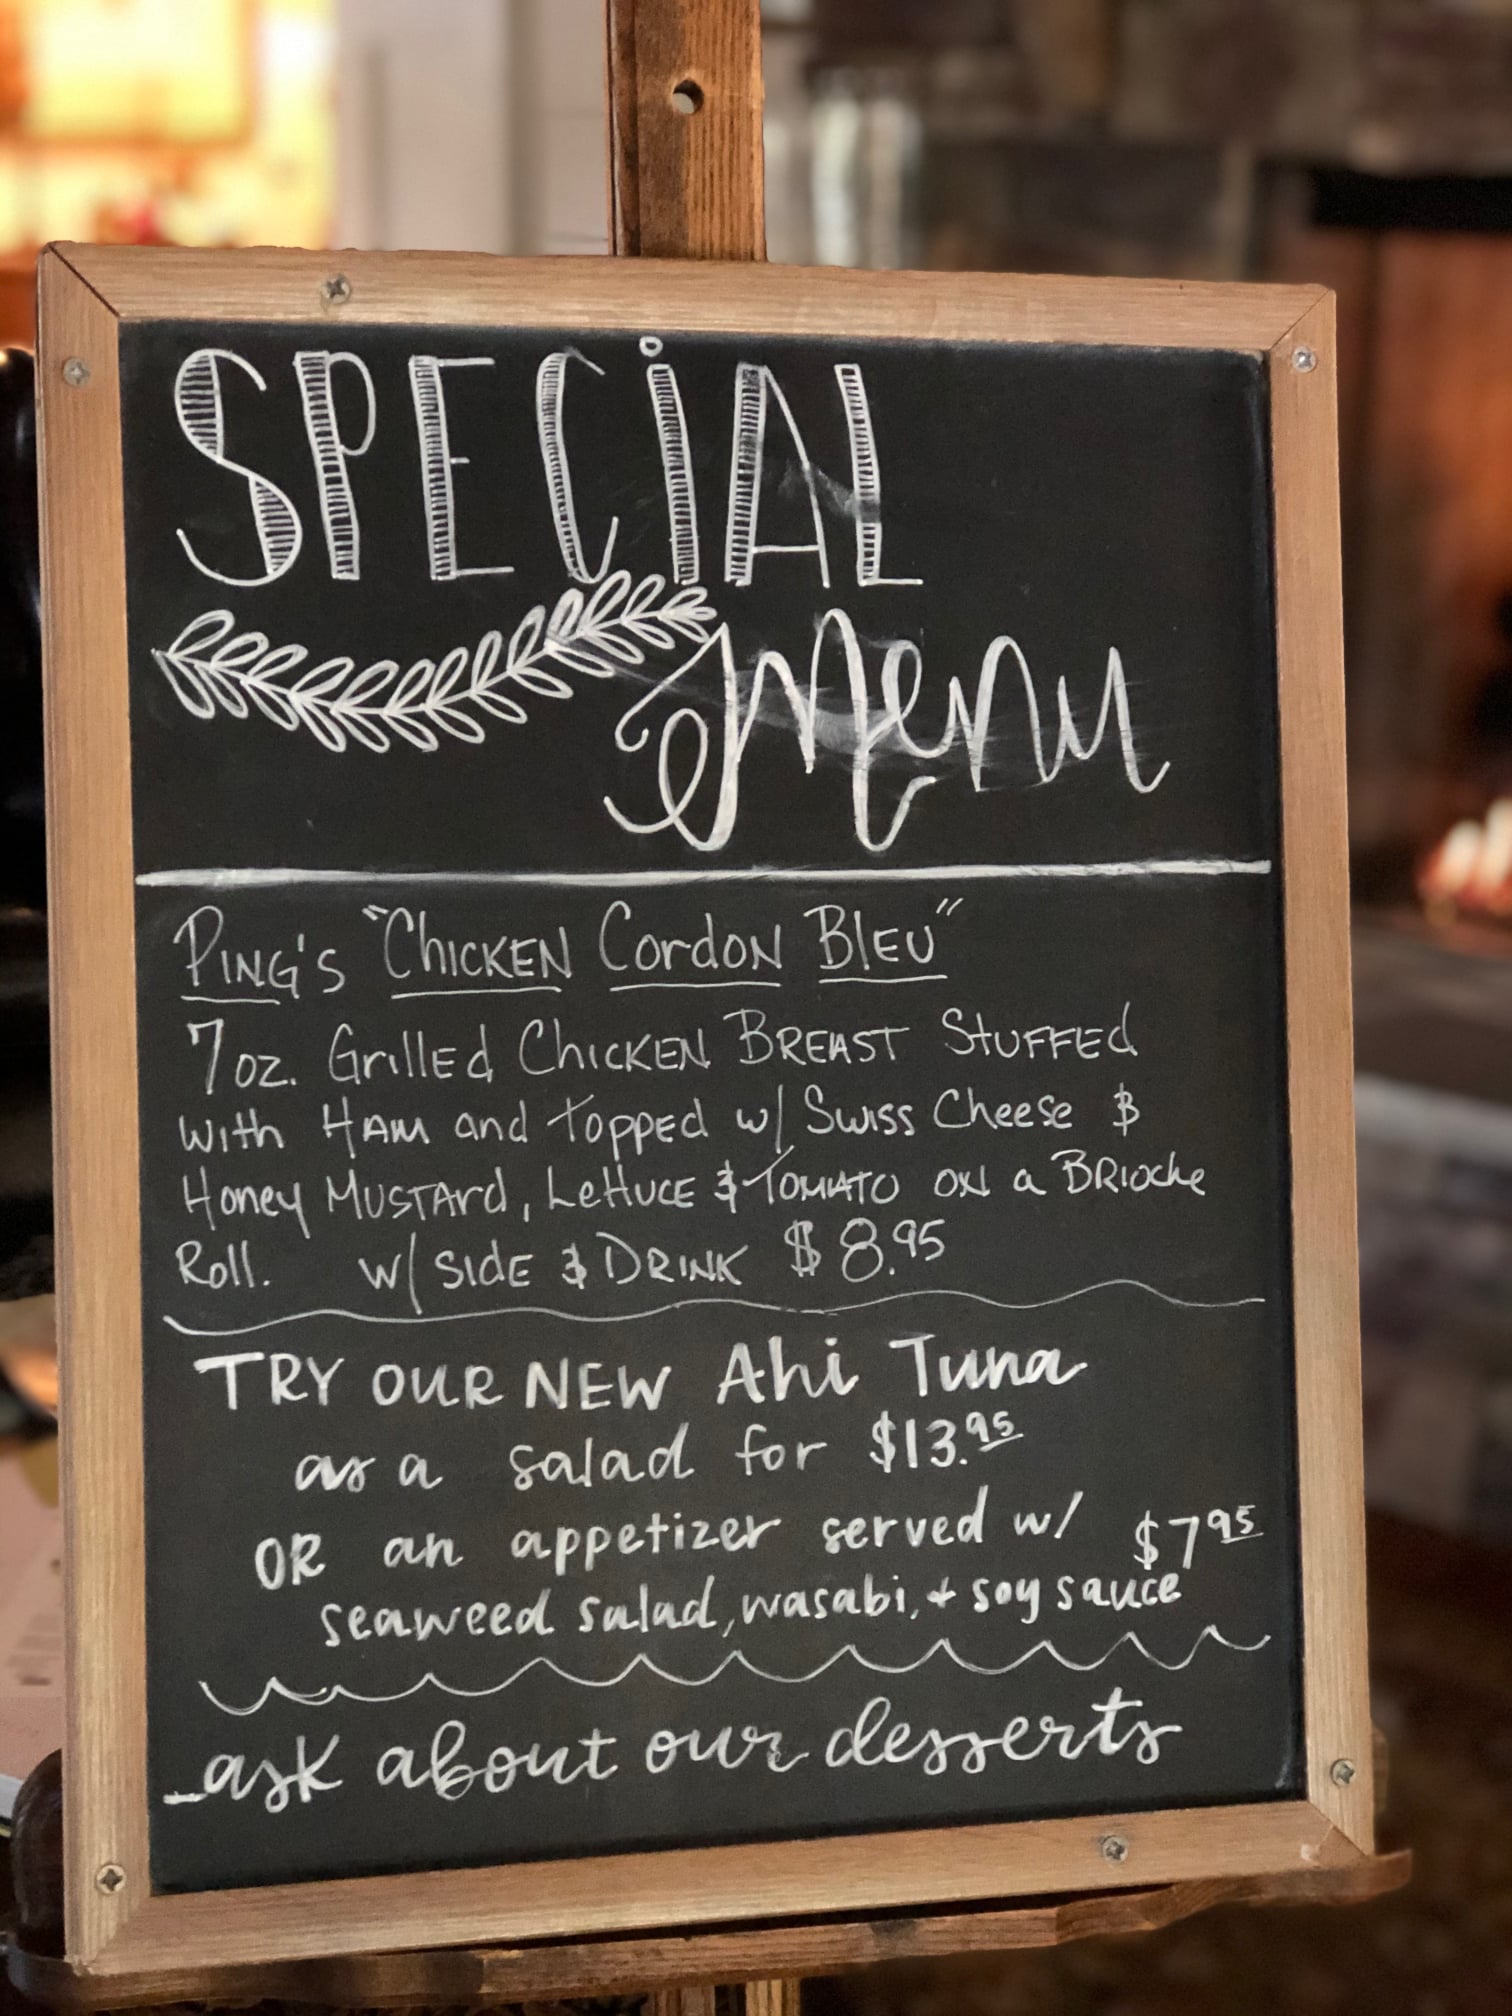 SPECiAL
Menu
PING'S "CHICKEN CordoN BlEU"
7 oz. GrillEd CHICKEN BREAST STUFFEd
with HAM and topped w/ Swiss Cheese &
Honey MUSTArd, LeTTUCE & TOMATO ON a BRIoche
Roll. w/ SIdE & DRINK $8.95
TRY OUR NEW Ahi Tuna
as a salad for $13.95
OR an appetizer served w/ $7.95
seaweed salad, wasabi, + soy sauce
ask about our desserts